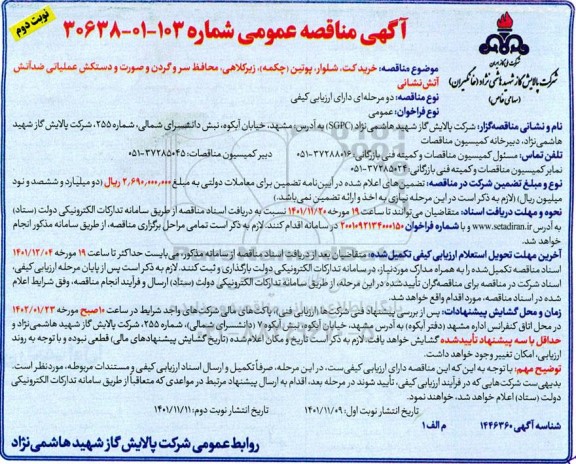 نوبت دوم
آگهی مناقصه عمومی شماره ۱۰۳-۰۱-۳۰۶۳۸
شرکت ملی گاز ایران
شرکت پالایش گاز شهید هاشمی نژاد (خانگیران)
(سهامی خاص)
موضوع مناقصه: خرید کت، شلوار، پوتین (چکمه)، زیرکلاهی، محافظ سر و گردن و صورت و دستکش عملیاتی ضدآتش
آتش نشانی
نوع مناقصه: دو مرحله‌ای دارای ارزیابی کیفی
نوع فراخوان: عمومی
نام و نشانی مناقصه‌گزار: شرکت پالایش گاز شهید هاشمی نژاد (SGPC) به آدرس مشهد، خیابان آبکوه، نبش دانشسرای شمالی، شماره ۲۵۵، شرکت پالایش گاز شهید
هاشمی‌نژاد، دبیرخانه کمیسیون مناقصات
تلفن تماس: مسئول کمیسیون مناقصات و کمیته فنی بازرگانی: ۳۷۲۸۸۰۱۶-۰۵۱ دبیر کمیسیون مناقصات: ۳۷۲۸۵۰۴۵-۰۵۱
نمابر کمیسیون مناقصات و کمیته فنی بازرگانی: ۳۷۲۸۵۰۲۴-۰۵۱
نوع و مبلغ تضمین شرکت در مناقصه: تضمین‌های اعلام شده در آیین‌نامه تضمین برای معاملات دولتی به مبلغ ۲,۶۹۰,۰۰۰,۰۰۰ ریال (دو میلیارد و ششصد و نود
میلیون ریال) (لازم به ذکر است در این مرحله نیازی به اخذ و ارائه تضمین نمی‌باشد.)
نحوه و مهلت دریافت اسناد: متقاضیان می‌توانند تا ساعت ۱۹ مورخه ۱۴۰۱/۱۱/۲۰ نسبت به دریافت اسناد مناقصه از طریق سامانه تدارکات الکترونیکی دولت (ستاد)
به آدرس www.setadiran.ir و با شماره فراخوان ۲۰۰۱۰۹۲۱۳۴۰۰۰۱۵۰ در سامانه اقدام کنند. لازم به ذکر است تمامی مراحل برگزاری مناقصه، از طریق سامانه مذکور انجام
خواهد شد.
آخرین مهلت تحویل استعلام ارزیابی کیفی تکمیل‌شده: متقاضیان بعد از دریافت اسناد مناقصه از سامانه مذکور، می‌بایست حداکثر تا ساعت ۱۹ مورخه ۱۴۰۱/۱۲/۰۴
اسناد مناقصه تکمیل شده را به همراه مدارک موردنیاز، در سامانه تدارکات الکترونیکی دولت بارگذاری و ثبت کنند. لازم به ذکر است پس از پایان مرحله ارزیابی کیفی،
اسناد شرکت در مناقصه برای مناقصه‌گران تأییدشده در این مرحله، از طریق سامانه تدارکات الکترونیکی دولت (ستاد) ارسال و فرآیند انجام مناقصه، وفق شرایط اعلام
شده در اسناد مناقصه، مورد اقدام واقع خواهد شد.
زمان و محل گشایش پیشنهادات: پس از بررسی پیشنهاد فنی شرکت‌ها (ارزیابی فنی)، پاکت‌های مالی شرکت‌های واجد شرایط در ساعت ۱۰ صبح مورخه ۱۴۰۲/۰۱/۲۳
در محل اتاق کنفرانس اداره مشهد (دفتر آبکوه) به آدرس مشهد، خیابان آبکوه، نبش آبکوه ۲ (دانشسرای شمالی)، شماره ۲۵۵، شرکت پالایش گاز شهید هاشمی‌نژاد و
حداقل با سه پیشنهاد تأییدشده گشایش خواهد یافت. لازم به ذکر است تاریخ و مکان اعلام‌شده (تاریخ گشایش پیشنهادهای مالی) قطعی نبوده و با توجه به روند
ارزیابی، امکان تغییر وجود خواهد داشت.
توضیح مهم: با توجه به این که این مناقصه دارای ارزیابی کیفی‌ست، در این مرحله، صرفاً تکمیل و ارسال اسناد ارزیابی کیفی و مستندات مربوطه، موردنظر است.
بدیهی‌ست شرکت‌هایی که در فرآیند ارزیابی کیفی، تأیید شوند در مرحله بعد، اقدام به ارسال پیشنهاد مرتبط در مواعدی که متعاقباً از طریق سامانه تدارکات الکترونیکی
دولت (ستاد) اعلام خواهد شد، خواهند نمود.
تاریخ انتشار نوبت اول: ۱۴۰۱/۱۱/۰۹ تاریخ انتشار نوبت دوم: ۱۴۰۱/۱۱/۱۱
شناسه آگهی ۱۴۴۶۳۶۰ م الف ۱
روابط عمومی شرکت پالایش گاز شهید هاشمی‌نژاد